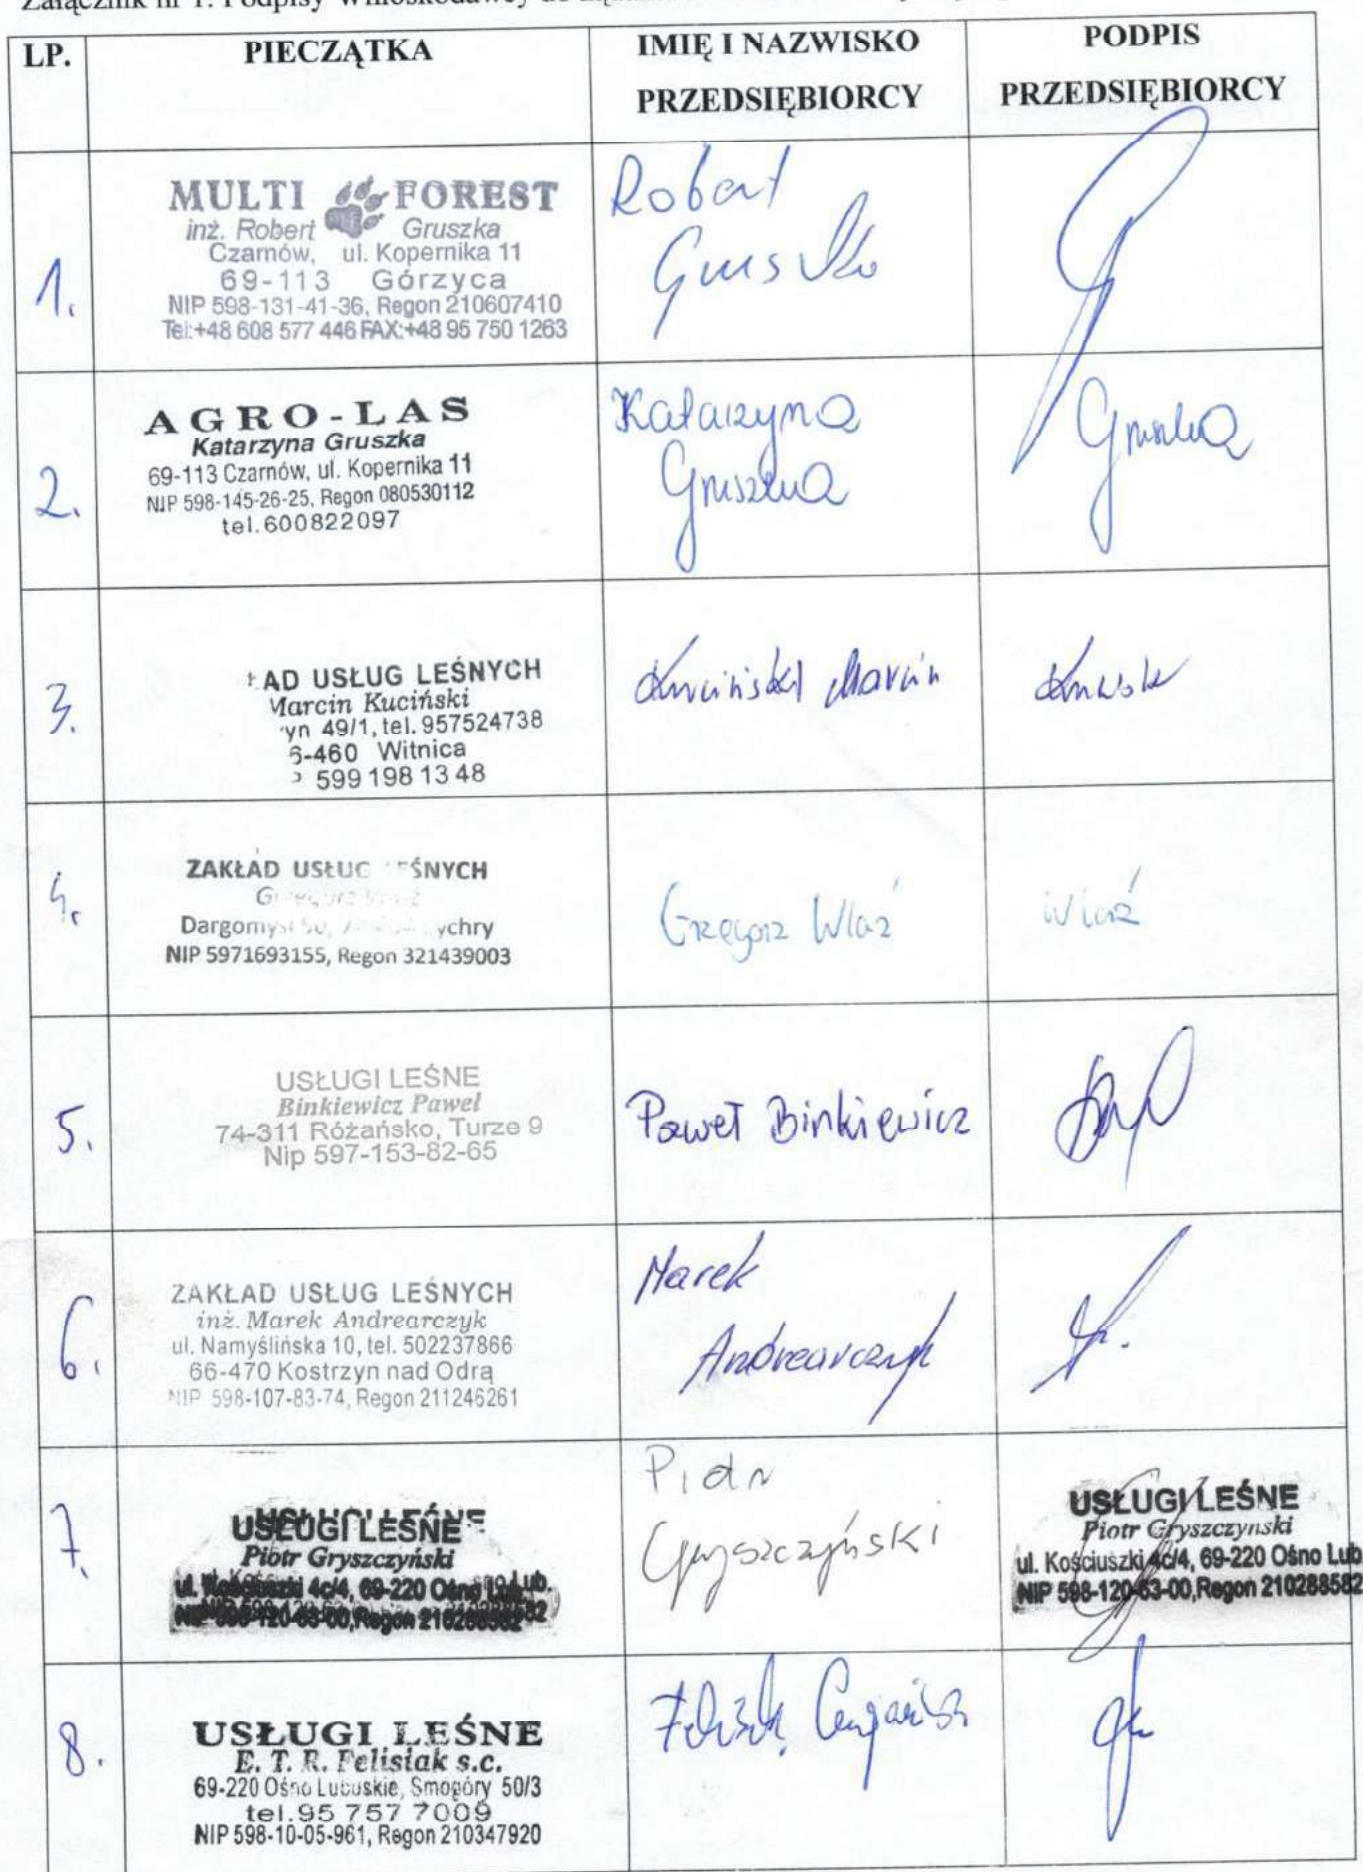 Załącznik nr 1. Podpisy Wnioskodawcy do
LP. PIECZĄTKA IMIĘ I NAZWISKO PRZEDSIĘBIORCY PODPIS PRZEDSIĘBIORCY
1.
MULTI FOREST
inż. Robert Gruszka
Czarnów, ul. Kopernika 11
69-113 Górzyca
NIP 598-131-41-36, Regon 210607410
Tel:+48 608 577 446 FAX:+48 95 750 1263
Robert
Gruszka
2.
AGRO-LAS
Katarzyna Gruszka
69-113 Czarnów, ul. Kopernika 11
NIP 598-145-26-25, Regon 080530112
tel.600822097
Katarzyna
Gruszka
Gruszka
3.
AD USŁUG LEŚNYCH
Marcin Kuciński
yn 49/1, tel. 957524738
6-460 Witnica
599 198 13 48
Kuciński Marcin
4.
ZAKŁAD USŁUG LEŚNYCH
Dargomyśl
ychry
NIP 5971693155, Regon 321439003
Grzegorz Wlaź
Wlaź
5.
USŁUGI LEŚNE
Binkiewicz Paweł
74-311 Różańsko, Turze 9
Nip 597-153-82-65
Paweł Binkiewicz
6.
ZAKŁAD USŁUG LEŚNYCH
inż. Marek Andrearczyk
ul. Namyślińska 10, tel. 502237866
66-470 Kostrzyn nad Odrą
NIP 598-107-83-74, Regon 211246261
Marek
Andrearczyk
7.
USŁUGI LEŚNE
Piotr Gryszczyński
ul. Kościuszki 4c/4, 69-220 Ośno Lub.
NIP 598-120-63-00, Regon 210288582
Piotr
Gryszczyński
USŁUGI LEŚNE
Piotr Gryszczyński
ul. Kościuszki 4c/4, 69-220 Ośno Lub
NIP 598-120-63-00, Regon 210288582
8.
USŁUGI LEŚNE
E. T. R. Felisiak s.c.
69-220 Ośno Lubuskie, Smogóry 50/3
tel.95 757 7009
NIP 598-10-05-961, Regon 210347920